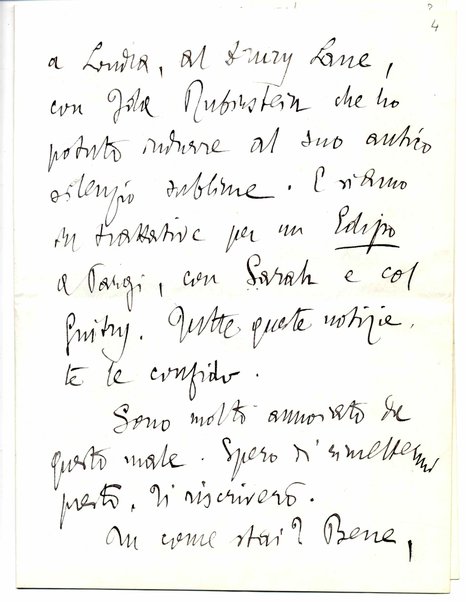 4
a Londra, al Drury Lane,
con Ida Rubinstein che ho
potuto indurre al suo antico
silenzio sublime. E siamo
in trattative per un Edipo
a Parigi, con Sarah e col
Guitry. Tutte queste notizie
te le confido.
Sono molto annoiato da
questo male. Spero di rimettermi
presto. Ti riscriverò.
Tu come stai? Bene,